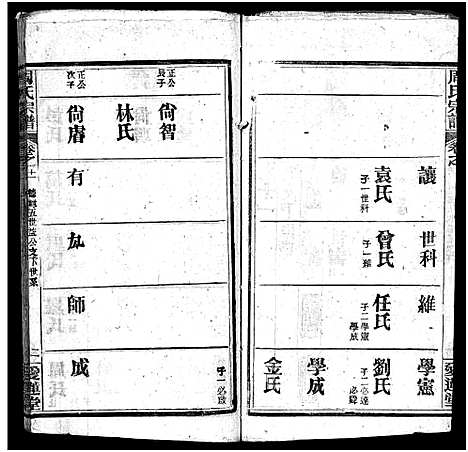 周氏宗譜
卷之
愛蓮堂
讓
袁氏
子一世科
世科
曾氏
子一維
維
任氏
子二學憲
學成
學憲
劉氏
子二必達
學成
金氏
子一必
正公
長子
尙智
林氏
正公
次子
尙
有
師
成
周氏宗譜
卷之十
五世益公支下世系
二
愛蓮堂